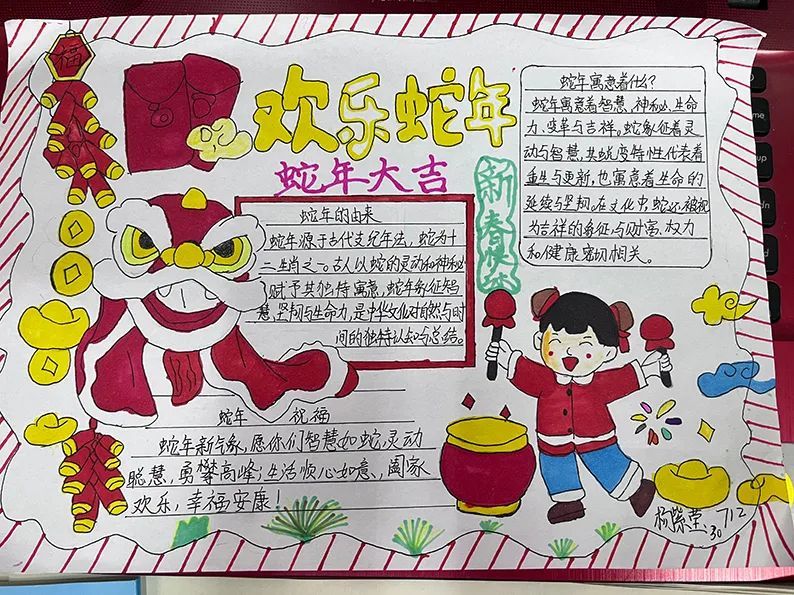 福
欢乐蛇年
蛇年大吉
新春快乐
蛇年寓意着什么？
蛇年寓意着智慧、神秘、生命
力、变革与吉祥。蛇象征着灵
动与智慧，其蜕变特性代表着
重生与更新，也寓意着生命的
延续与坚韧。在文化中，蛇还被视
为吉祥的象征，与财富、权力
和健康密切相关。
蛇年的由来
蛇年源于古代干支纪年法，蛇为十
二生肖之一。古人以蛇的灵动和神秘
赋予其独特寓意，蛇年象征智
慧、坚韧与生命力，是中华文化对自然与时
间的独特认知与总结。
蛇年 祝福
蛇年新气象，愿你们智慧如蛇，灵动
聪慧，勇攀高峰；生活顺心如意，阖家
欢乐，幸福安康！
712
30